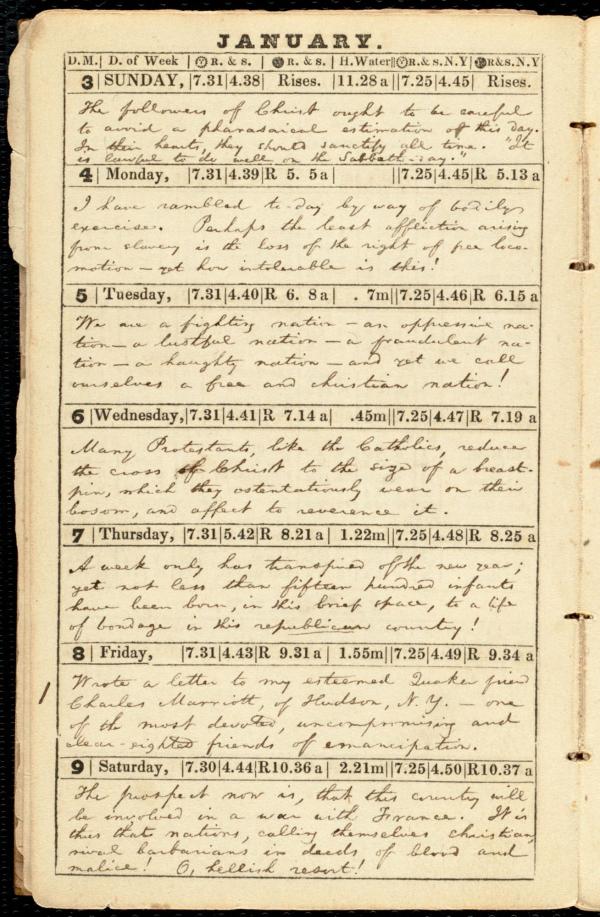 JANUARY.
D.M.| D. of Week | R. & s. | R. & s. | H.Water||R.& s.N.Y|R&s.N.Y
3 | SUNDAY, |7.31|4.38| Rises. |11.28 a||7.25|4.45| Rises.
The followers of Christ ought to be careful
to avoid a pharasaical estimation of this day.
In their hearts, they should sanctify all time. "It
is lawful to do well on the Sabbath-day."
4 | Monday, |7.31|4.39|R 5. 5a| ||7.25|4.45|R 5.13 a
I have rambled to-day by way of bodily
exercise. Perhaps the least affliction arising
from slavery is the loss of the right of free loco-
motion — yet how intolerable is this!
5 | Tuesday, |7.31|4.40|R 6. 8a| . 7m||7.25|4.46|R 6.15 a
We are a fighting nation — an oppressive na-
tion — a lustful nation — a fraudulent na-
tion — a haughty nation — and yet we call
ourselves a free and christian nation!
6 | Wednesday, |7.31|4.41|R 7.14 a| .45m||7.25|4.47|R 7.19 a
Many Protestants, like the Catholics, reduce
the cross of Christ to the size of a breast-
pin, which they ostentatiously wear on their
bosom, and affect to reverence it.
7 | Thursday, |7.31|5.42|R 8.21 a| 1.22m||7.25|4.48|R 8.25 a
A week only has transpired of the new year;
yet not less than fifteen hundred infants
have been born, in this brief space, to a life
of bondage in this republican country!
8 | Friday, |7.31|4.43|R 9.31 a| 1.55m||7.25|4.49|R 9.34 a
Wrote a letter to my esteemed Quaker friend
Charles Marriott, of Hudson, N.Y. — one
of the most devoted, uncompromising and
clear-sighted friends of emancipation.
9 | Saturday, |7.30|4.44|R10.36 a| 2.21m||7.25|4.50|R10.37 a
The prospect now is, that this country will
be involved in a war with France. It is
thus that nations, calling themselves christian,
rival barbarians in deeds of blood and
malice! O, hellish resort!